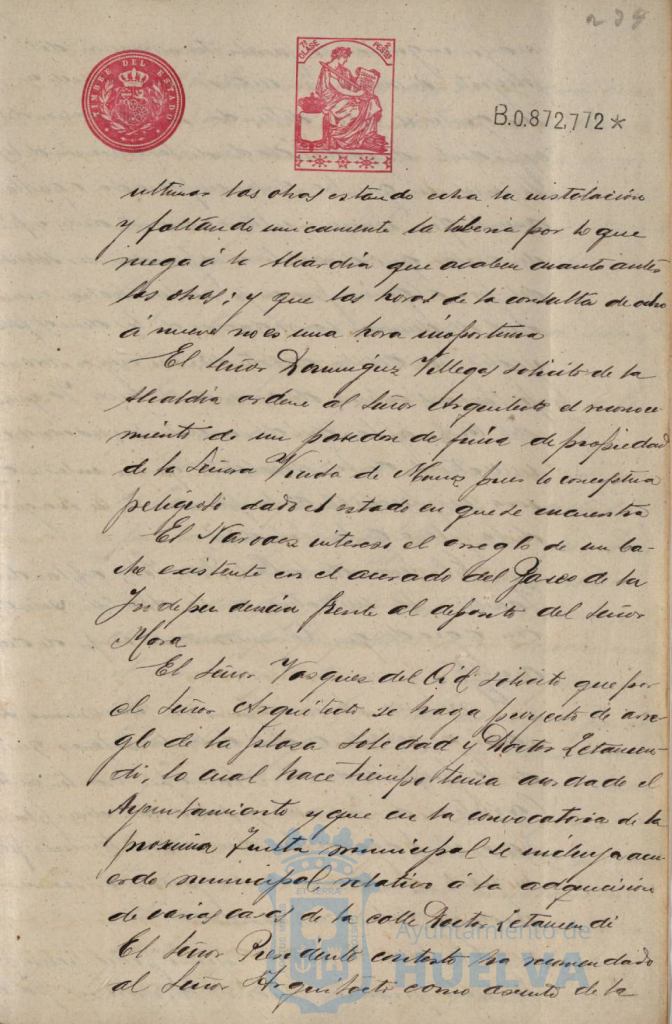 239
TIMBRE DEL ESTADO
7ª CLASE PESETAS
B.0.872,772*
ultimar las obras estando echa la instalación
y faltando unicamente la tuberia por lo que
ruega á la Alcardia que acaben cuanto antes
las obras; y que las horas de la consulta de ocho
á nueve no es una hora inoportuna
El Señor Dominguez Villegas solicitó de la
Alcaldia ordene al Señor Arquitecto el reconoci-
miento de un paredon de finca de propiedad
de la Señora Viuda de pues lo conceptua
peligroso dado el estado en que se encuentra
El Narvaez intereso el arreglo de un ba-
che existente en el acerado del Paseo de la
Independencia frente al deposito del Señor
Mora
El Señor Vasquez del Cid solicito que por
el Señor Arquitecto se haga proyecto de arre-
glo de la plasa Soledad y Doctor Letamen-
di, lo cual hace tiempo tenia acordado el
Ayuntamiento y que en la convocatoria de la
proxima Junta municipal se incluya acu-
erdo municipal relativo á la adquicisión
de varias casas de la calle Doctor Letamendi
El Señor Presidente contestó ha recomendado
al Señor Arquitecto como asunto de la
Ayuntamiento de
HUELVA